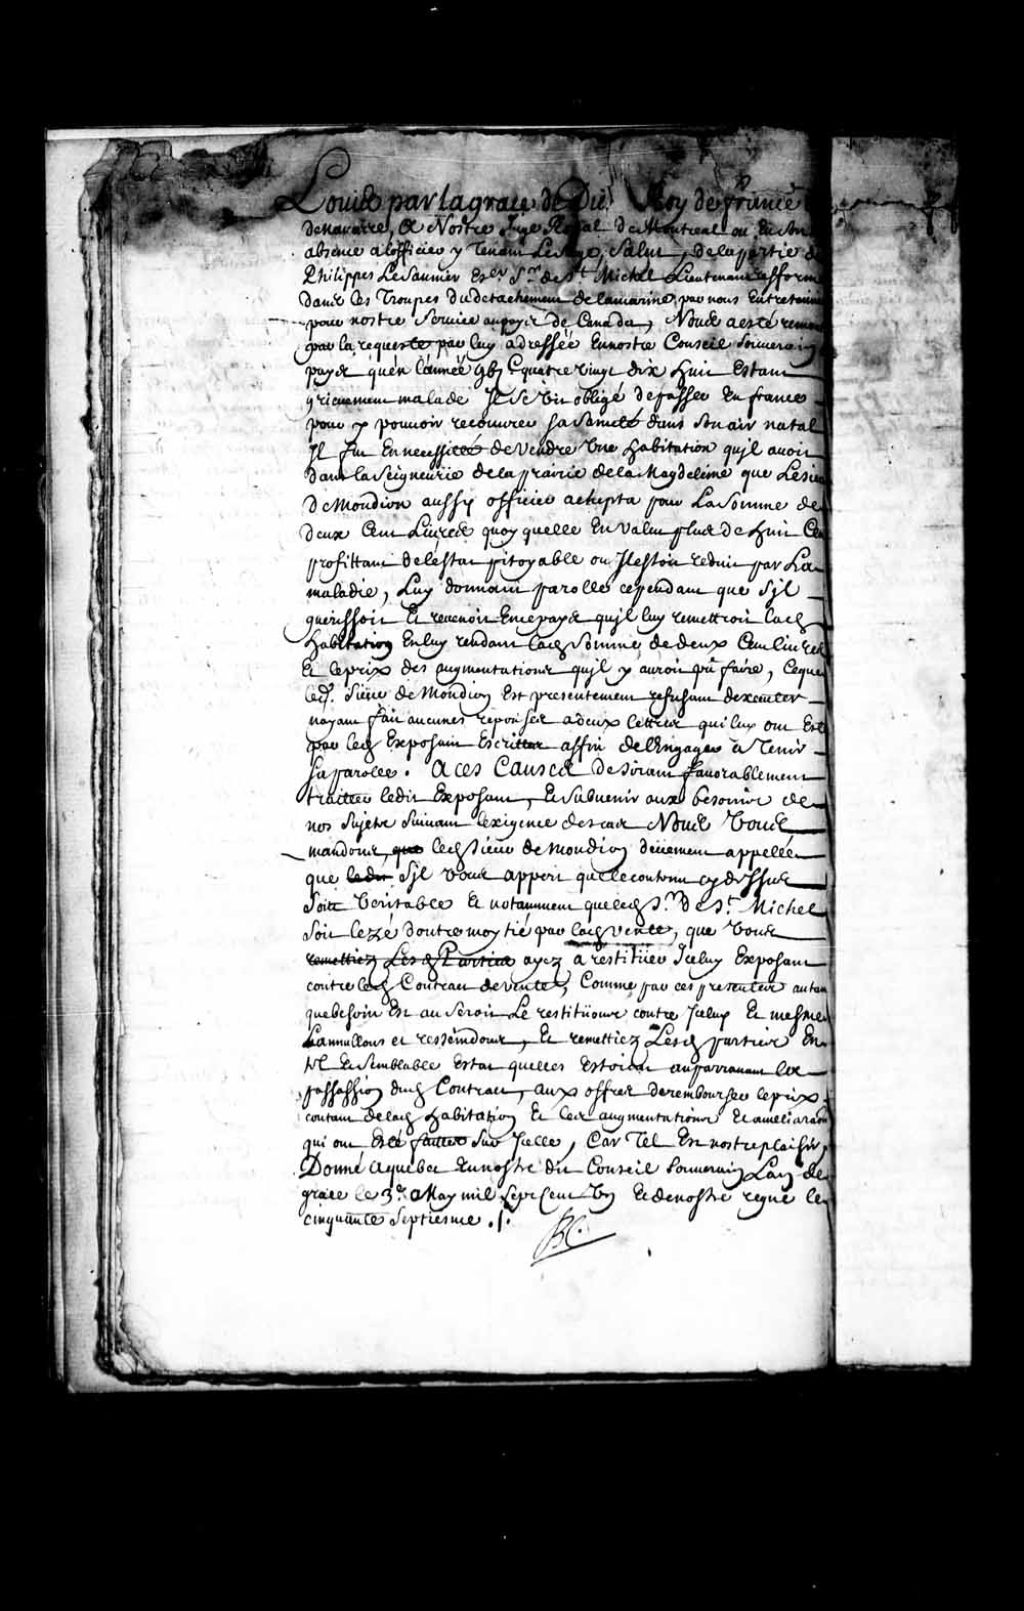 Louis par la grace de Dieu Roy de france
de navarre, A Nostre Juge Royal de Montreal ou En son
absence a lofficier y Tenant Le siege, Salut, de la partie de
Philippes Le Saunier Esc.er S.r de S.t Michel Lieutenant refformé
dans les Troupes du detachement de la marine, par nous Entretenues
pour nostre service au pays de Canada, Nous a esté remon
par la requeste par luy adressée En nostre Conseil souverain
pays qu'en l'année gbj C quatre vingt dix huit Estant
grievement malade Il se vit obligé de passer En france
pour y pouvoir recouvrer sa Santé dans son air natal
Il fut En necessité de vendre Une habitation qu'il avoit
dans la Seigneurie de la prairie de la Magdeleine que Le sieur
De Mondion aussy officier achepta pour La somme de
deux Cent Livres quoy quelle En valut plus de huit Cen
profittant de lestat pitoyable ou Il estoit reduit par La
maladie, Luy donnant parolle cependant que sjl
guerissoit Et revenoit En ce pays qujl luy remettroit lad.
habitation En luy rendant lad. somme de deux Cent livres
Et le prix des augmentations qujl y auroit pû faire, Ceque
led. Sieur de Mondion Est presentement refusant dexecuter
nayant fait aucunes reponses a deux lettres qui luy ont Esté
par led. Exposant Escrittes affin de l'Engager a Tenir
sa parolle. A ces Causes desirant favorablement
traitter ledit Exposant, Et subvenir aux besoins de
nos sujets suivant lexigence des cas Nous Vous
mandons, que led. sieur de Mondion deüement appellé
que ledit sjl vous appert que le contenu cy dessus
soit Veritable Et notamment que led. S.r De S.t Michel
soit lezé doutre moytié par lad. vente, que vous
remettiez Lesd. Parties ayez a restitüer Iceluy Exposant
contre led. Contract de vente, Comme par ces presentes autan
que besoin Est ou seroit Le restitüons contre Iceluy Et mesme
Lannullons et resseindons, Et remettiez Lesd. parties En
tel Et semblable Estat quelles Estoient auparavant la
passassion dud. Contract, aux offres de rembourser le prix
coutant de lad. habitation Et les augmentations Et ameliaraon
qui ont Esté faittes sur Icelle, Car Tel Est nostre plaisir,
Donné a quebec En nostre dit Conseil souverain Lan de
grace le 3.e May mil sept Cent Un Et de nostre regne le
cinquante septiesme ./.